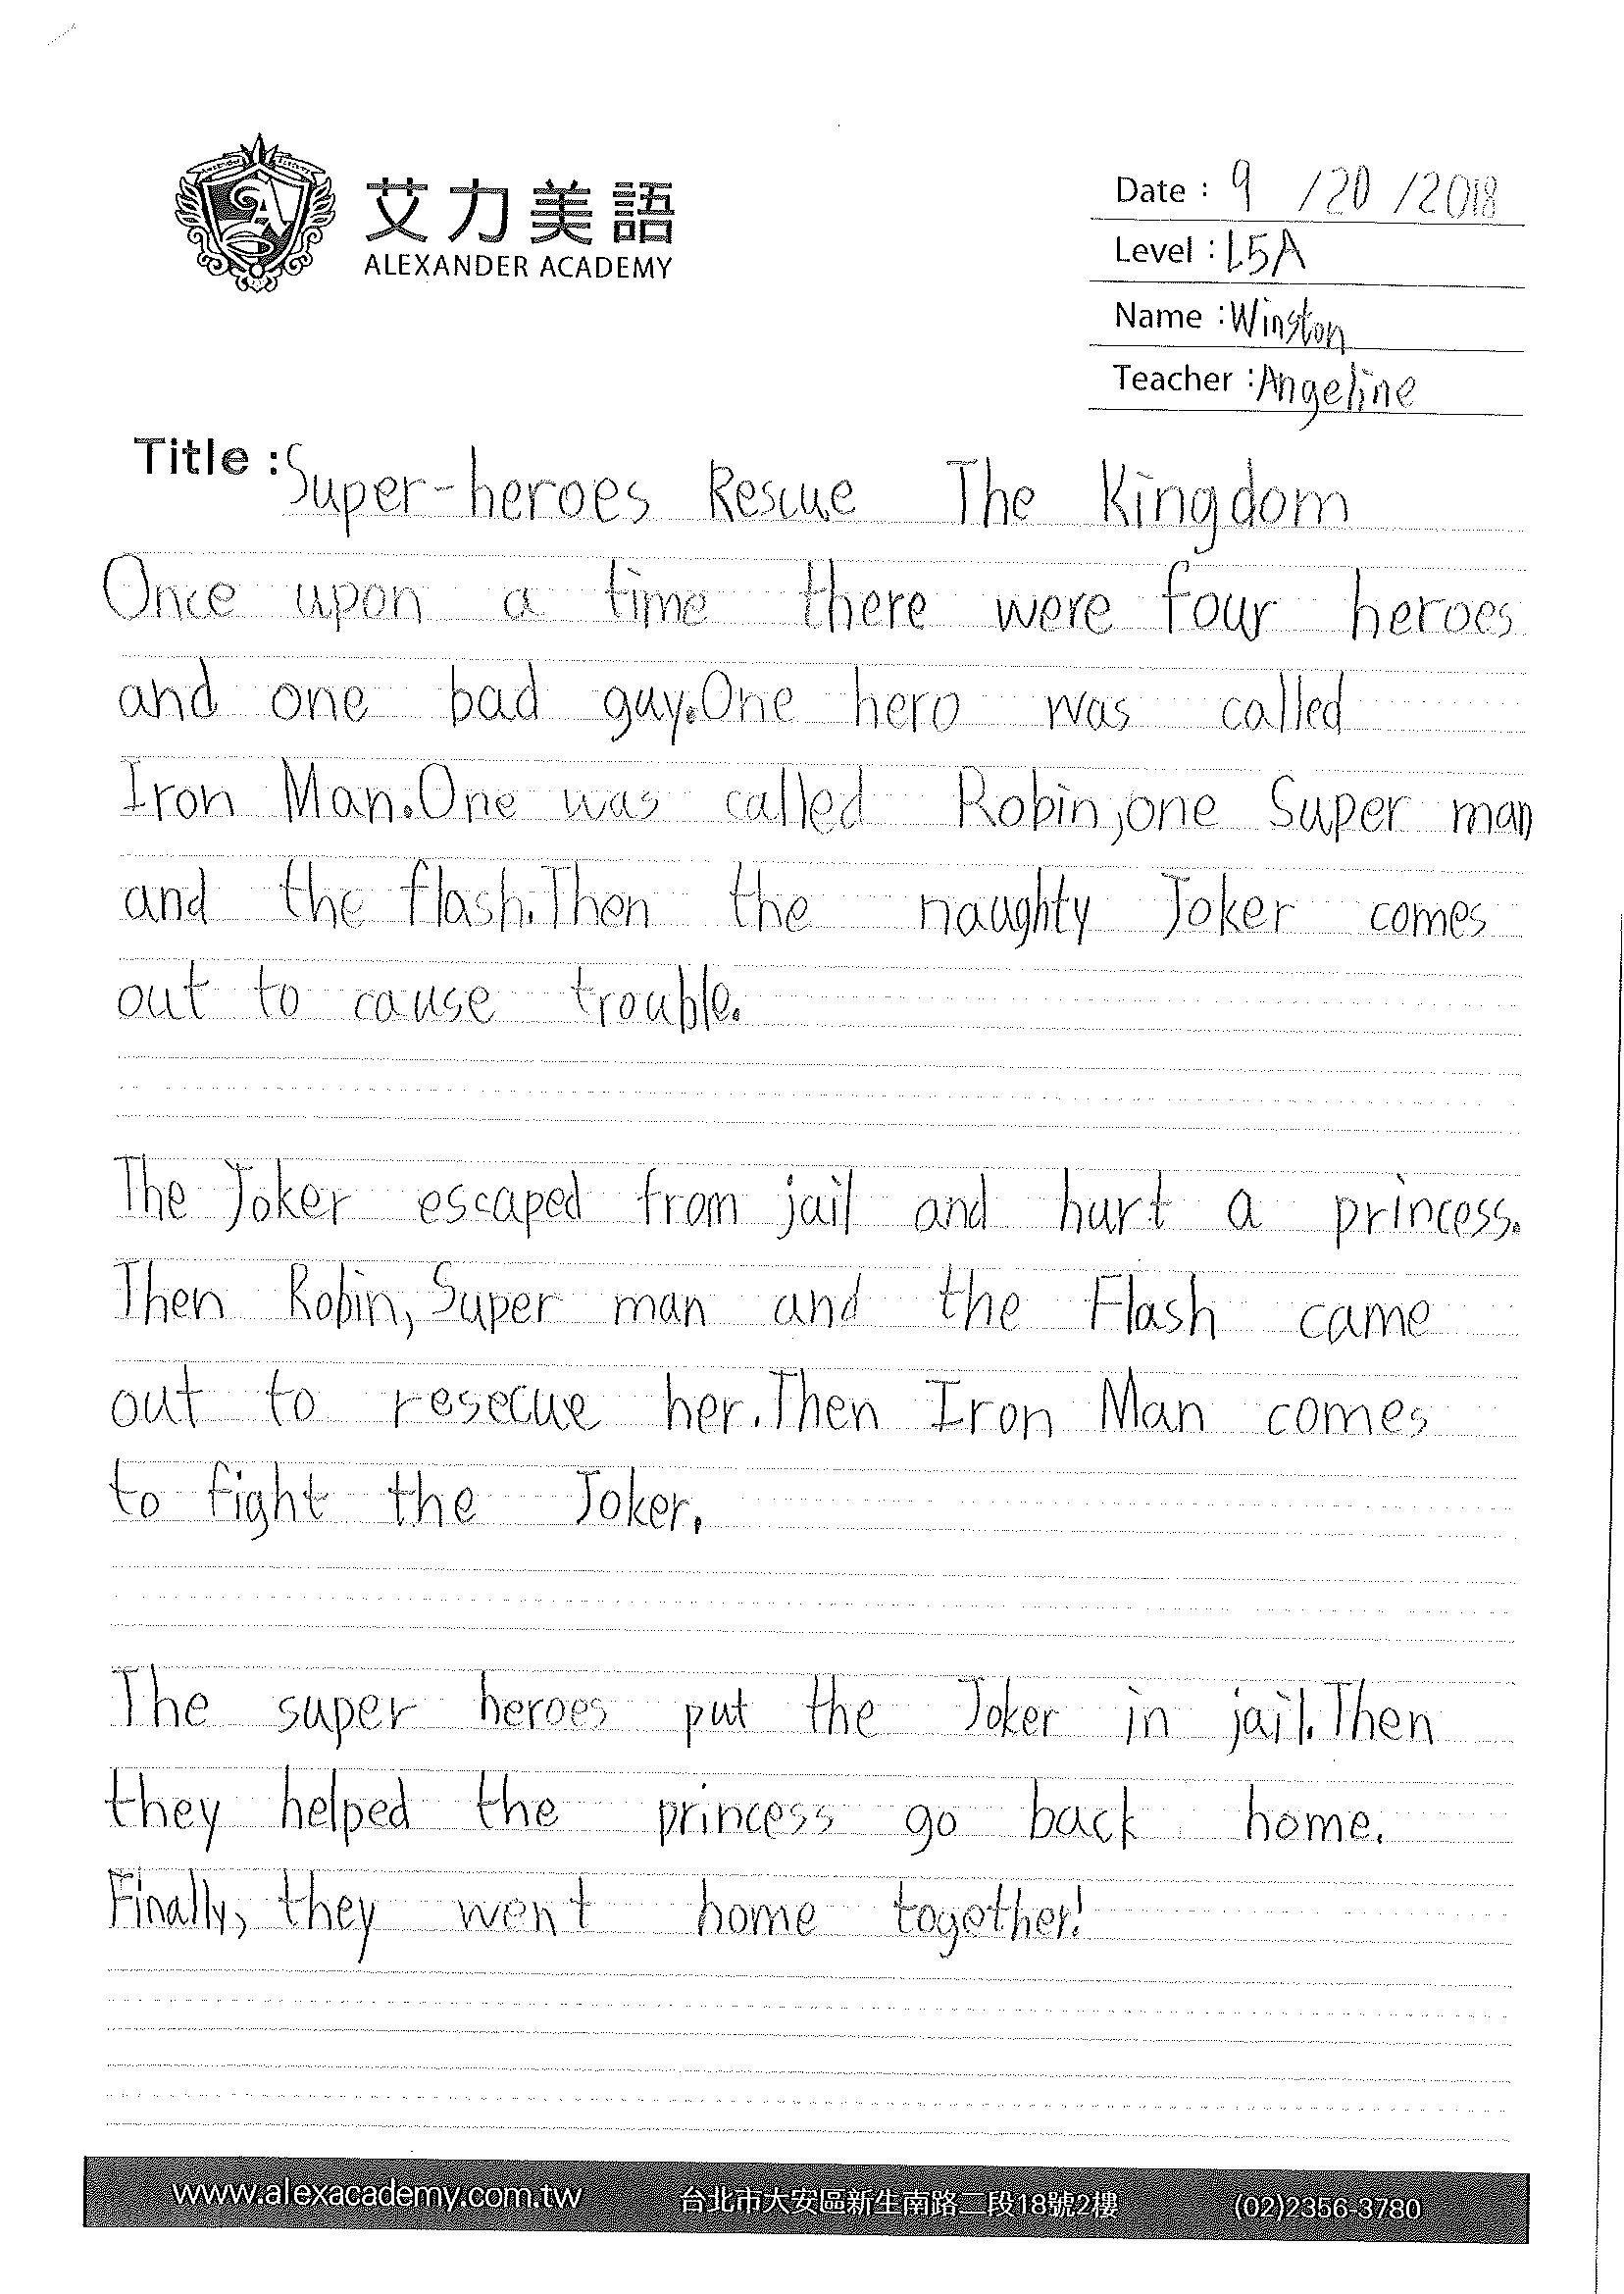 艾力美語
ALEXANDER ACADEMY
Date : 9 /20 /2018
Level : L5A
Name : Winston
Teacher : Angeline
Title : Super-heroes Rescue The Kingdom
Once upon a time there were four heroes
and one bad guy.One hero was called
Iron Man.One was called Robin,one Super man
and the flash.Then the naughty Joker comes
out to cause trouble.
The Joker escaped from jail and hurt a princess.
Then Robin, Super man and the Flash came
out to resecue her.Then Iron Man comes
to fight the Joker.
The super heroes put the Joker in jail.Then
they helped the princess go back home.
Finally, they went home together!
www.alexacademy.com.tw 台北市大安區新生南路二段18號2樓 (02)2356-3780